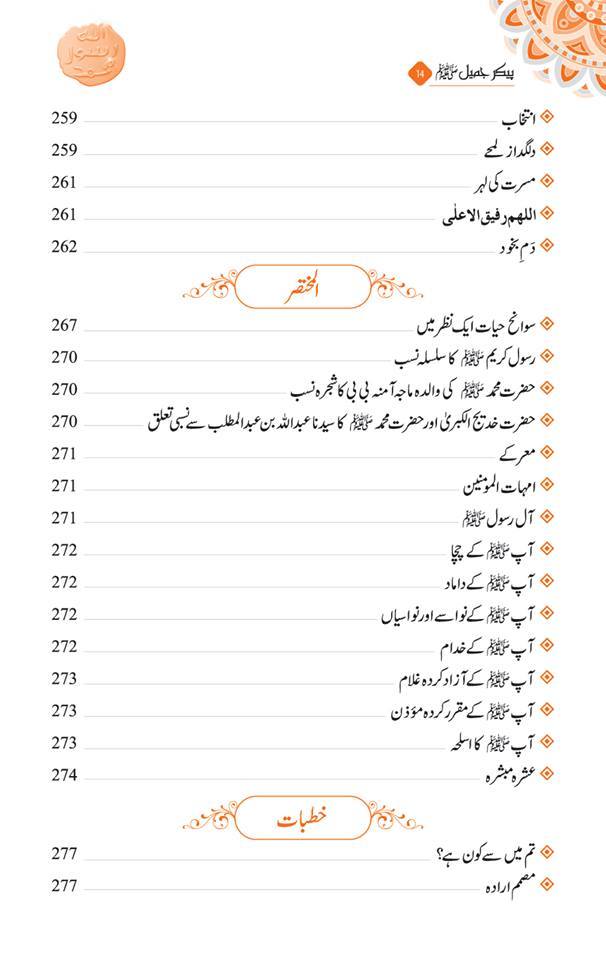 الله
رسول
محمد
پیکر جمیل ﷺ 14
انتخاب 259
دلگداز لمحے 259
مسرت کی لہر 261
اللهم رفیق الاعلٰی 261
دَمِ بخود 262
المختصر
سوانح حیات ایک نظر میں 267
رسول کریم ﷺ کا سلسلہ نسب 270
حضرت محمد ﷺ کی والدہ ماجدہ آمنہ بی بی کا شجرہ نسب 270
حضرت خدیج الکبریٰ اور حضرت محمد ﷺ کا سیدنا عبداللہ بن عبدالمطلب سے نسبی تعلق 270
معرکے 271
امہات المومنین 271
آل رسول ﷺ 271
آپ ﷺ کے چچا 272
آپ ﷺ کے داماد 272
آپ ﷺ کے نواسے اور نواسیاں 272
آپ ﷺ کے خدام 272
آپ ﷺ کے آزاد کردہ غلام 273
آپ ﷺ کے مقرر کردہ مؤذن 273
آپ ﷺ کا اسلحہ 273
عشرہ مبشرہ 274
خطبات
تم میں سے کون ہے؟ 277
مصمم ارادہ 277